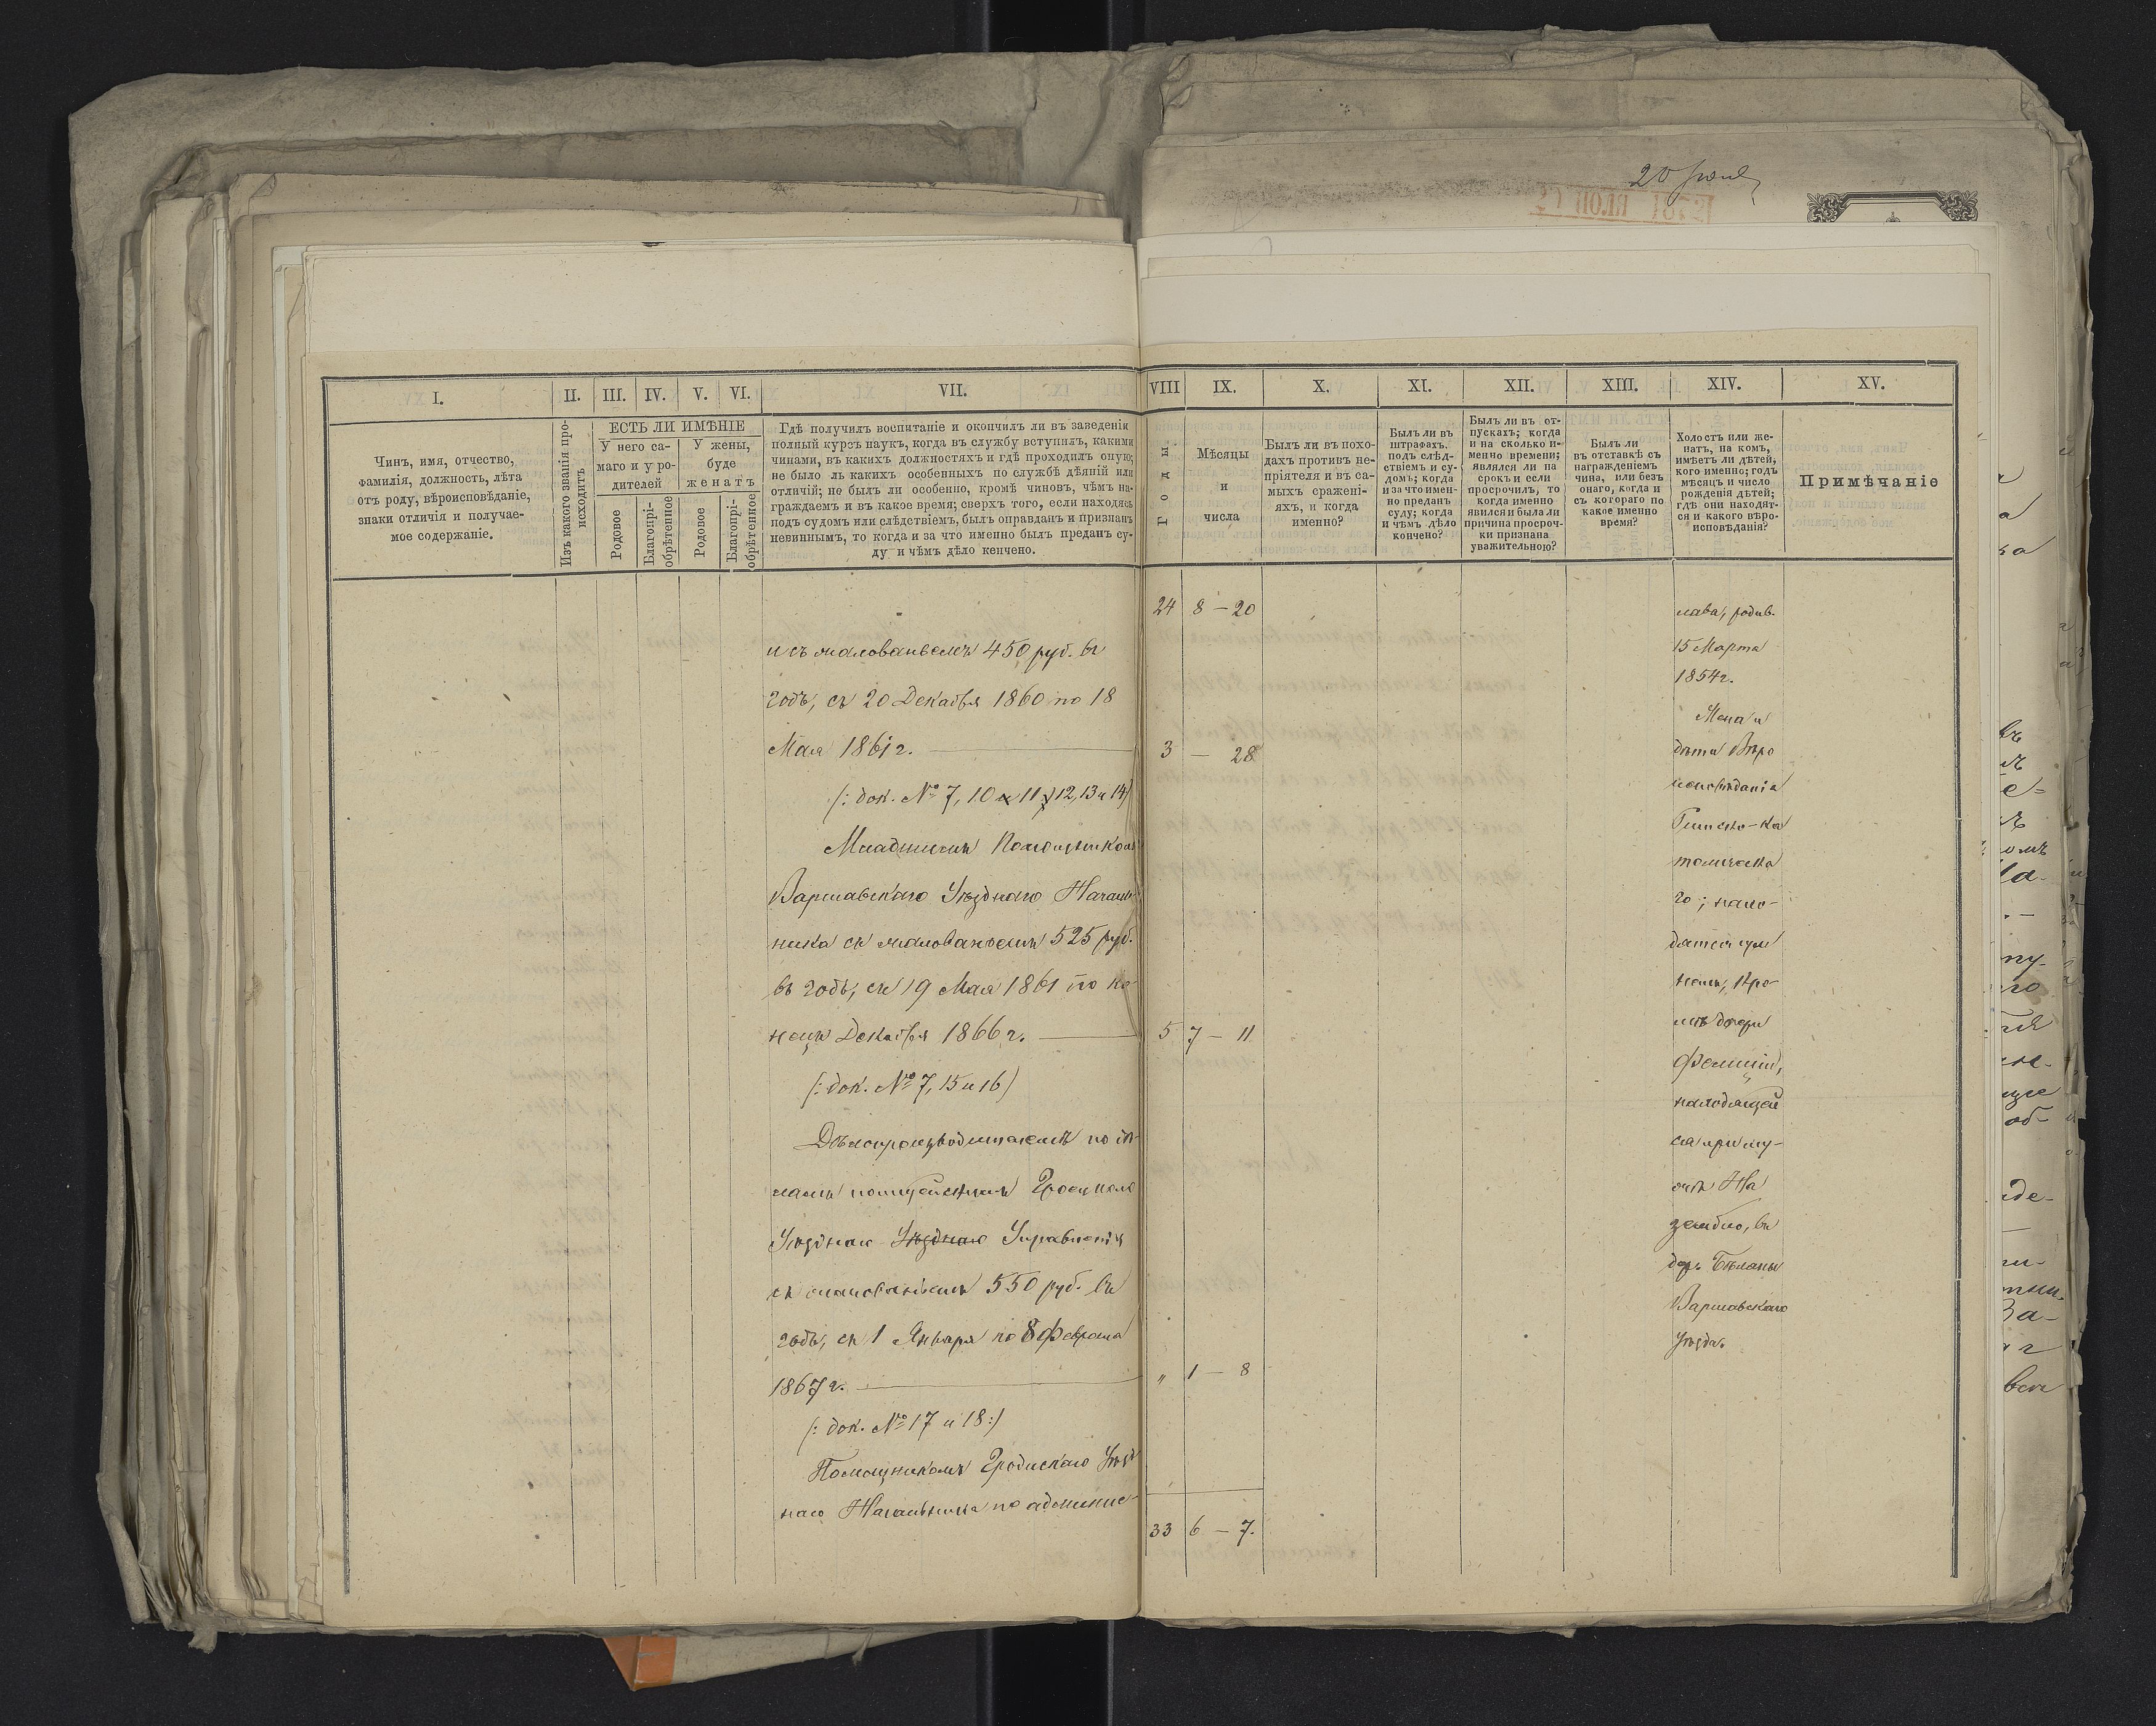 20 Июня
I.
II.
III.
IV.
V.
VI.
VII.
VIII
IX.
X.
XI.
XII.
XIII.
XIV.
XV.
Чинъ, имя, отчество,
фамилія, должность, лѣта
отъ роду, вѣроисповѣданіе,
знаки отличія и получае-
мое содержаніе.
Изъ какого званія про-
исходитъ
ЕСТЬ ЛИ ИМѢНІЕ
У него са-
маго и у ро-
дителей
У жены,
буде
женатъ
Родовое
Благопрі-
обрѣтенное
Родовое
Благопрі-
обрѣтенное
Гдѣ получилъ воспитаніе и окончилъ ли въ заведеніи
полный курсъ наукъ, когда въ службу вступилъ, какими
чинами, въ какихъ должностяхъ и гдѣ проходилъ оную;
не было ль какихъ особенныхъ по службѣ дѣяній или
отличій; не былъ ли особенно, кромѣ чиновъ, чѣмъ на-
граждаемъ и въ какое время; сверхъ того, если находясь
подъ судомъ или слѣдствіемъ, былъ оправданъ и признанъ
невиннымъ, то когда и за что именно былъ преданъ су-
ду и чѣмъ дѣло кончено.
Годы.
Мѣсяцы
и
числа
Былъ ли въ похо-
дахъ противъ не-
пріятеля и въ са-
мыхъ сражені-
яхъ, и когда
именно?
Былъ ли въ
штрафахъ,
подъ слѣд-
ствіемъ и су-
домъ; когда
и за что имен-
но преданъ
суду; когда
и чѣмъ дѣло
кончено?
Былъ ли въ от-
пускахъ; когда
и на сколько и-
менно времени;
являлся ли на
срокъ и если
просрочилъ, то
когда именно
явился и была ли
причина просроч-
ки признана
уважительною?
Былъ ли
въ отставкѣ съ
награжденіемъ
чина, или безъ
онаго, когда и
съ котораго по
какое именно
время?
Холостъ или же-
натъ, на комъ,
имѣетъ ли дѣтей,
кого именно; годъ
мѣсяцъ и число
рожденія дѣтей;
гдѣ они находят-
ся и какого вѣро-
исповѣданія?
Примѣчаніе
24 8 — 20
и съ жалованьемъ 450 руб. въ
годъ, съ 20 Декабря 1860 по 18
Мая 1861 г.
3 — 28
(: док. № 7, 10 11 12, 13 и 14)
Младшимъ Помощникомъ
Варшавскаго Уѣзднаго Началь-
ника съ жалованьемъ 525 руб.
въ годъ, съ 19 Мая 1861 по ко-
нецъ Декабря 1866 г.
5 7 — 11
(: док. № 7, 15 и 16)
Дѣлопроизводителемъ по дѣ-
ламъ полицейскимъ
Уѣзднаго Уѣзднаго Управленія
съ жалованьемъ 550 руб. въ
годъ, съ 1 Января по 8 Февраля
1867 г.
" 1 — 8
(: док. № 17 и 18 :)
Помощникомъ Гродискаго Уѣзд
наго Начальника по админис-
33 6 — 7.
лава, родив.
15 Марта
1854 г.
Жена и
дѣти Вѣро
исповѣданія
Римско-ка
толическа
го; нахо-
дятся при
немъ, кро-
мѣ дочери
Фелиціи,
находящей
ся при му-
жѣ На
зембло, въ
дер. Бѣляны
Варшавскаго
Уѣзда.